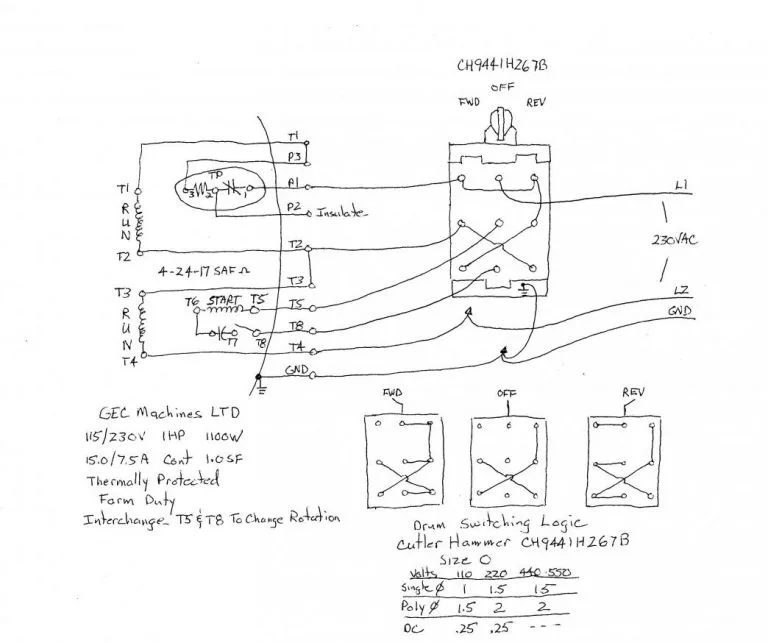 CH9441H267B
OFF
FWD REV
T1
P3
TP
3 2 1
P1
P2 Insulate
T1
RUN
T2
T2
4-24-17 SAF Ω
T3
T3
T6 START T5
T5
RUN
T7 T8
T8
T4
T4
GND
L1
230VAC
L2
GND
GEC Machines LTD
115/230V 1HP 1100W
15.0/7.5A Cont 1.0SF
Thermally Protected
Farm Duty
Interchange T5 & T8 To Change Rotation
FWD OFF REV
Drum Switching Logic
Cutler Hammer CH9441H267B
Size O
Volts 110 220 440-550
Single Ø 1 1.5 1.5
Poly Ø 1.5 2 2
DC .25 .25 - - -